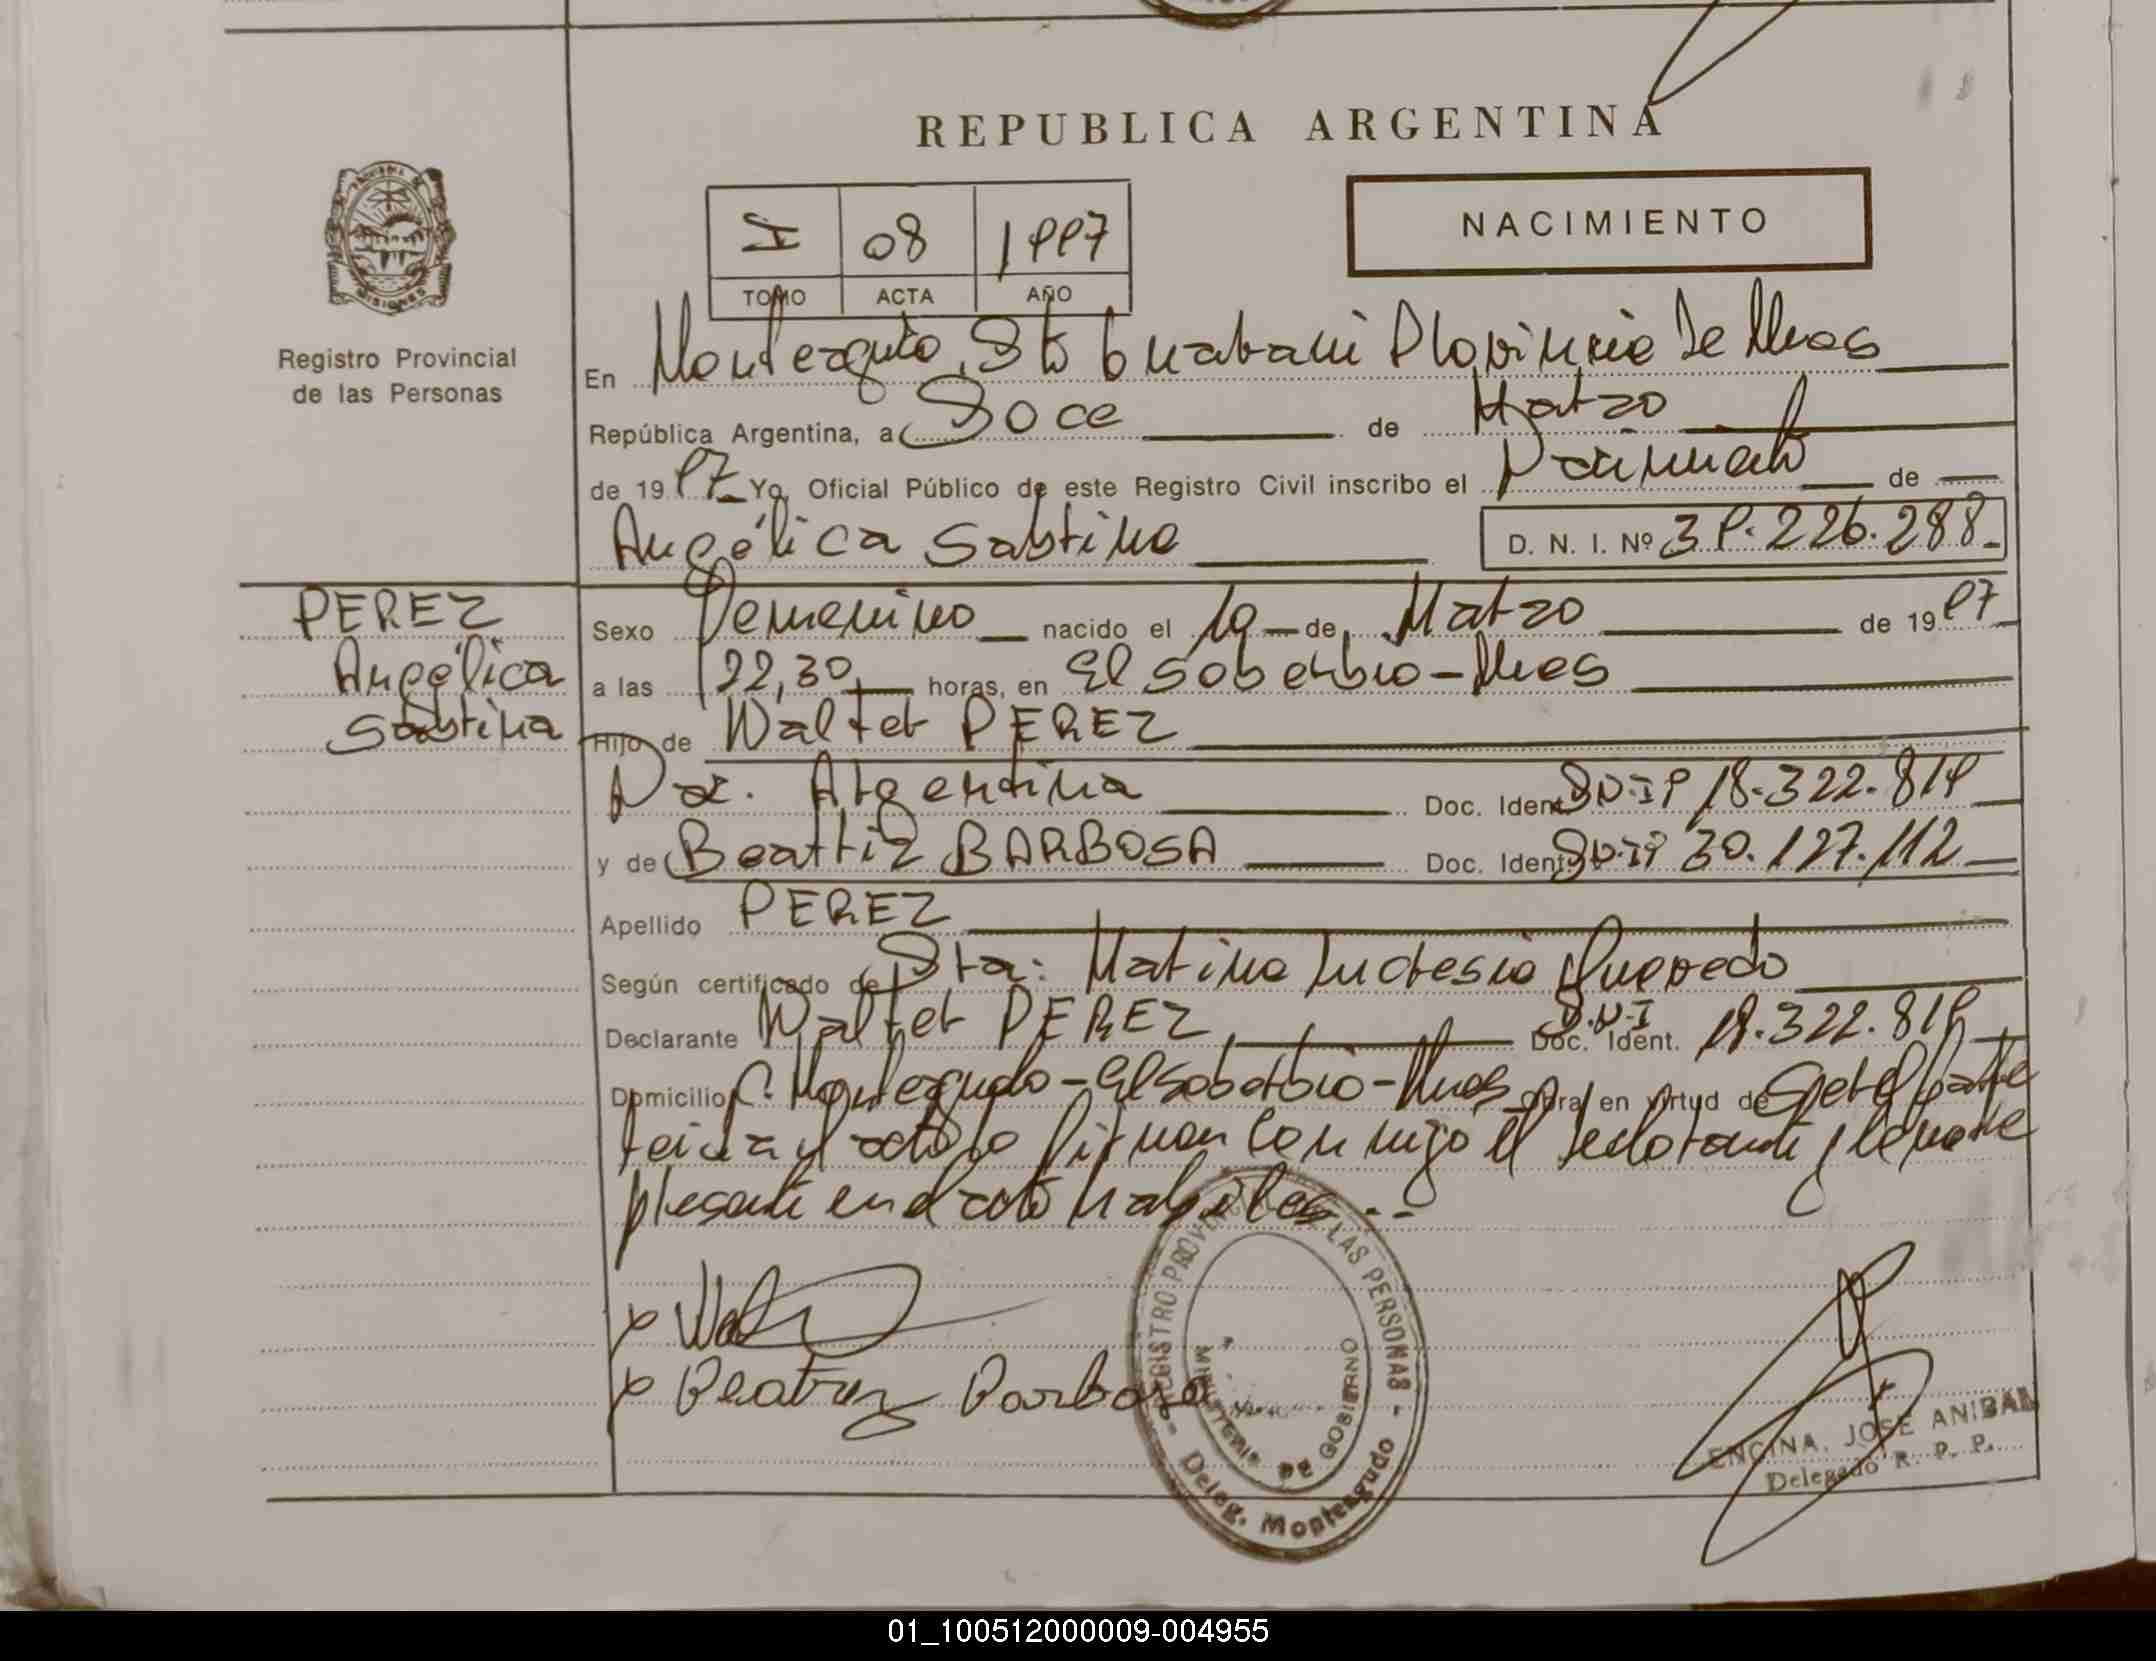 REPUBLICA ARGENTINA
I 08 1997
TOMO ACTA AÑO
NACIMIENTO
MISIONES
Registro Provincial
de las Personas
En Monteagudo, Dto Guarani Provincia de Mnes
República Argentina, a Doce de Marzo
de 1997 Yo, Oficial Público de este Registro Civil inscribo el Nacimiento de
Angélica Sabrina D. N. I. Nº 39.226.288
PEREZ
Angélica
Sabrina
Sexo Femenino nacido el 10 de Marzo de 1997
a las 22,30 horas, en El Soberbio - Mnes
Hijo de Walter PEREZ
Nac. Argentina Doc. Ident. D.N.I Nº 18.322.819
y de Beatriz BARBOSA Doc. Ident. D.N.I Nº 30.127.112
Apellido PEREZ
Según certificado de Dra: Marina Lucresia Quevedo
Declarante Walter PEREZ Doc. Ident. D.N.I 18.322.819
Domicilio C. Monteagudo - El Soberbio - Mnes Obra en virtud de
leida el acta la firman conmigo el declarante y la madre
presente en el acto habiles.--
Beatriz Barbosa
REGISTRO PROVINCIAL DE LAS PERSONAS
MINISTERIO DE GOBIERNO
Deleg. Monteagudo
ENCINA, JOSE ANIBAL
Delegado R. P. P.
01_100512000009-004955